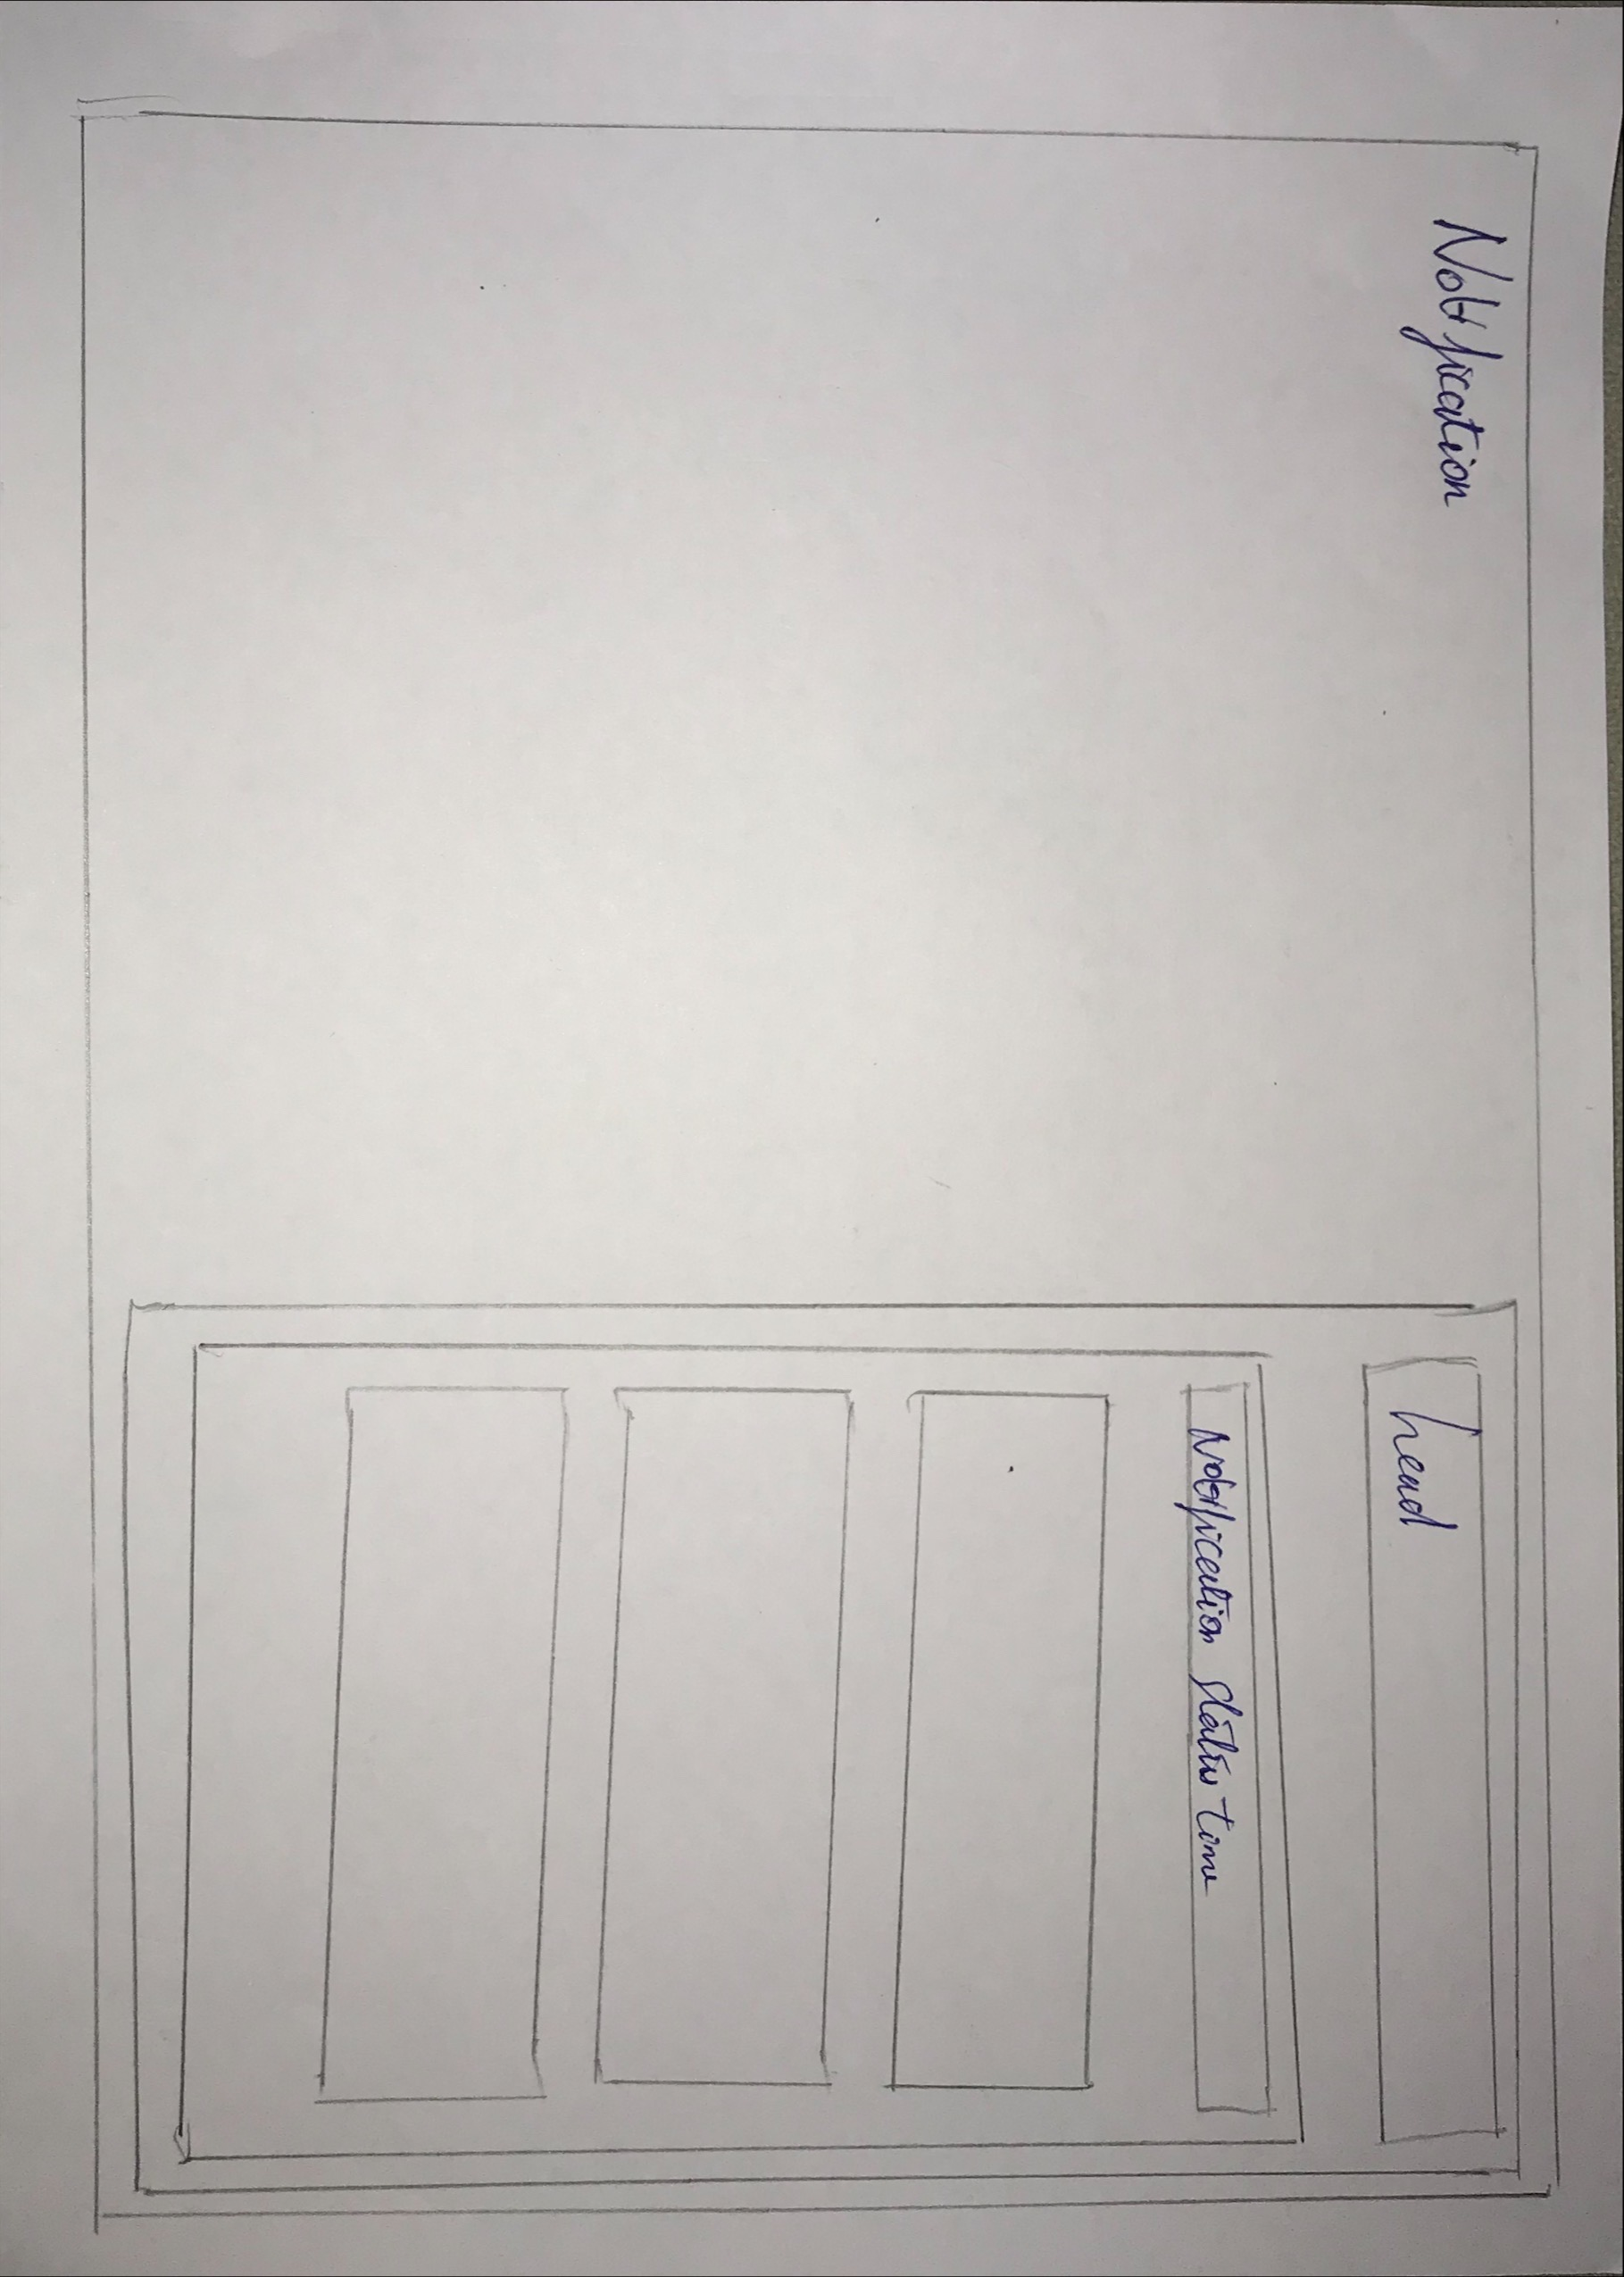 Notification
head
Notification status time